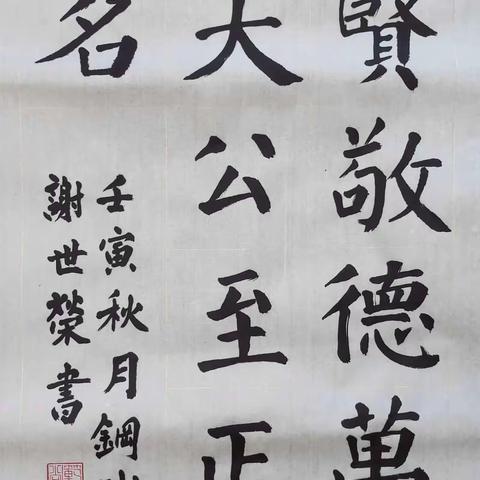 賢敬德萬
大公至正
名
壬寅秋月鋼
謝世榮書